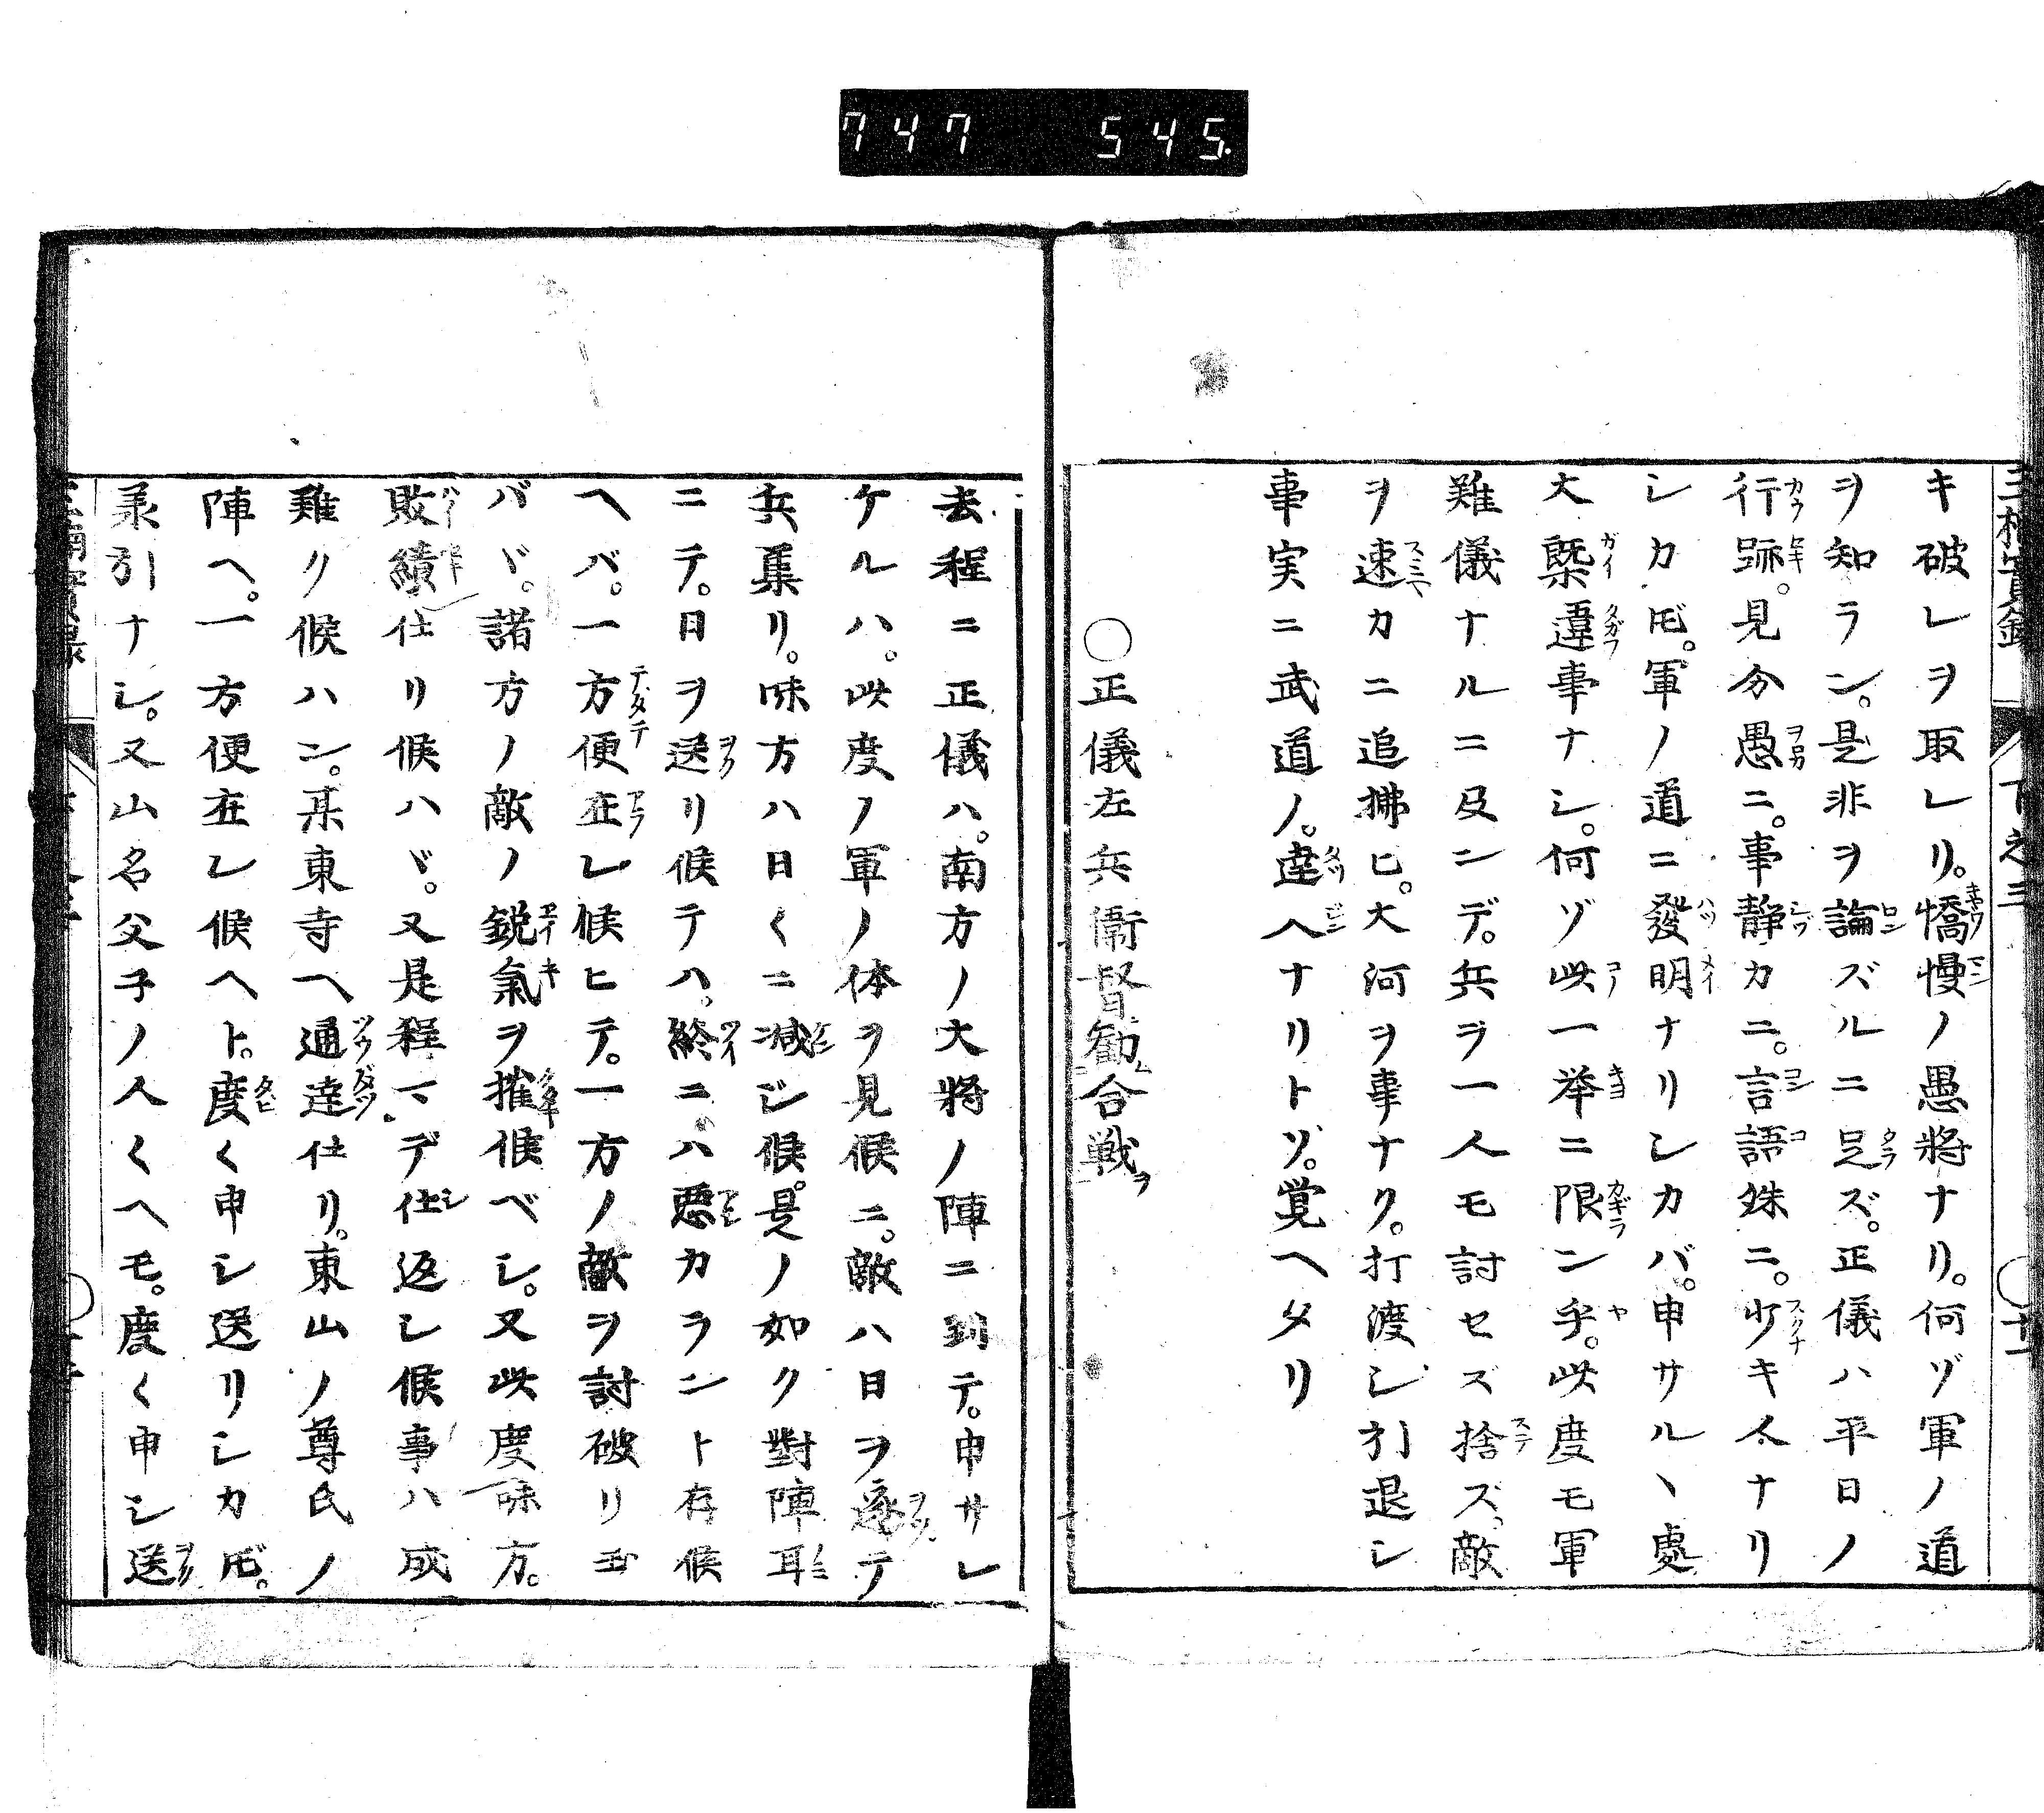 747 545.
キ破レヲ取レリ。憍慢ノ愚將ナリ。何ゾ軍ノ道
ヲ知ラン。是非ヲ論ズルニ足ズ。正儀ハ平日ノ
行跡。見分愚ニ。事静カニ。言語殊ニ。少キ人ナリ
シカ𪜈。軍ノ道ニ發明ナリシカバ。申サルヽ處
大槩違事ナシ。何ゾ此一挙ニ限ン乎。此度モ軍
難儀ナルニ及ンデ。兵ヲ一人モ討セズ捨ズ。敵
ヲ速カニ追拂ヒ。大河ヲ事ナク。打渡シ引退シ
事実ニ武道ノ。達人ナリトゾ。覚ヘタリ
○正儀左兵衞督勧合戦ヲ
去程ニ正儀ハ。南方ノ大將ノ陣ニ到テ。申サレ
ケルハ。此度ノ軍ノ体ヲ見候ニ。敵ハ日ヲ逐テ
兵集リ。味方ハ日〱ニ減ジ候。是ノ如ク對陣耳
ニテ。日ヲ送リ候テハ。終ニハ悪カラント存候
ヘバ。一方便在レ候ヒテ。一方ノ敵ヲ討破リ玉
バヾ。諸方ノ敵ノ鋭氣ヲ摧候ベシ。又此度味方。
敗績仕リ候ハヾ。又是程マデ仕返シ候事ハ成
難ク候ハン。某東寺ヘ通達仕リ。東山ノ尊氏ノ
陣ヘ。一方便在レ候ヘト。度〱申シ送リシカ𪜈。
承引ナシ。又山名父子ノ人〱ヘモ。度〱申シ送